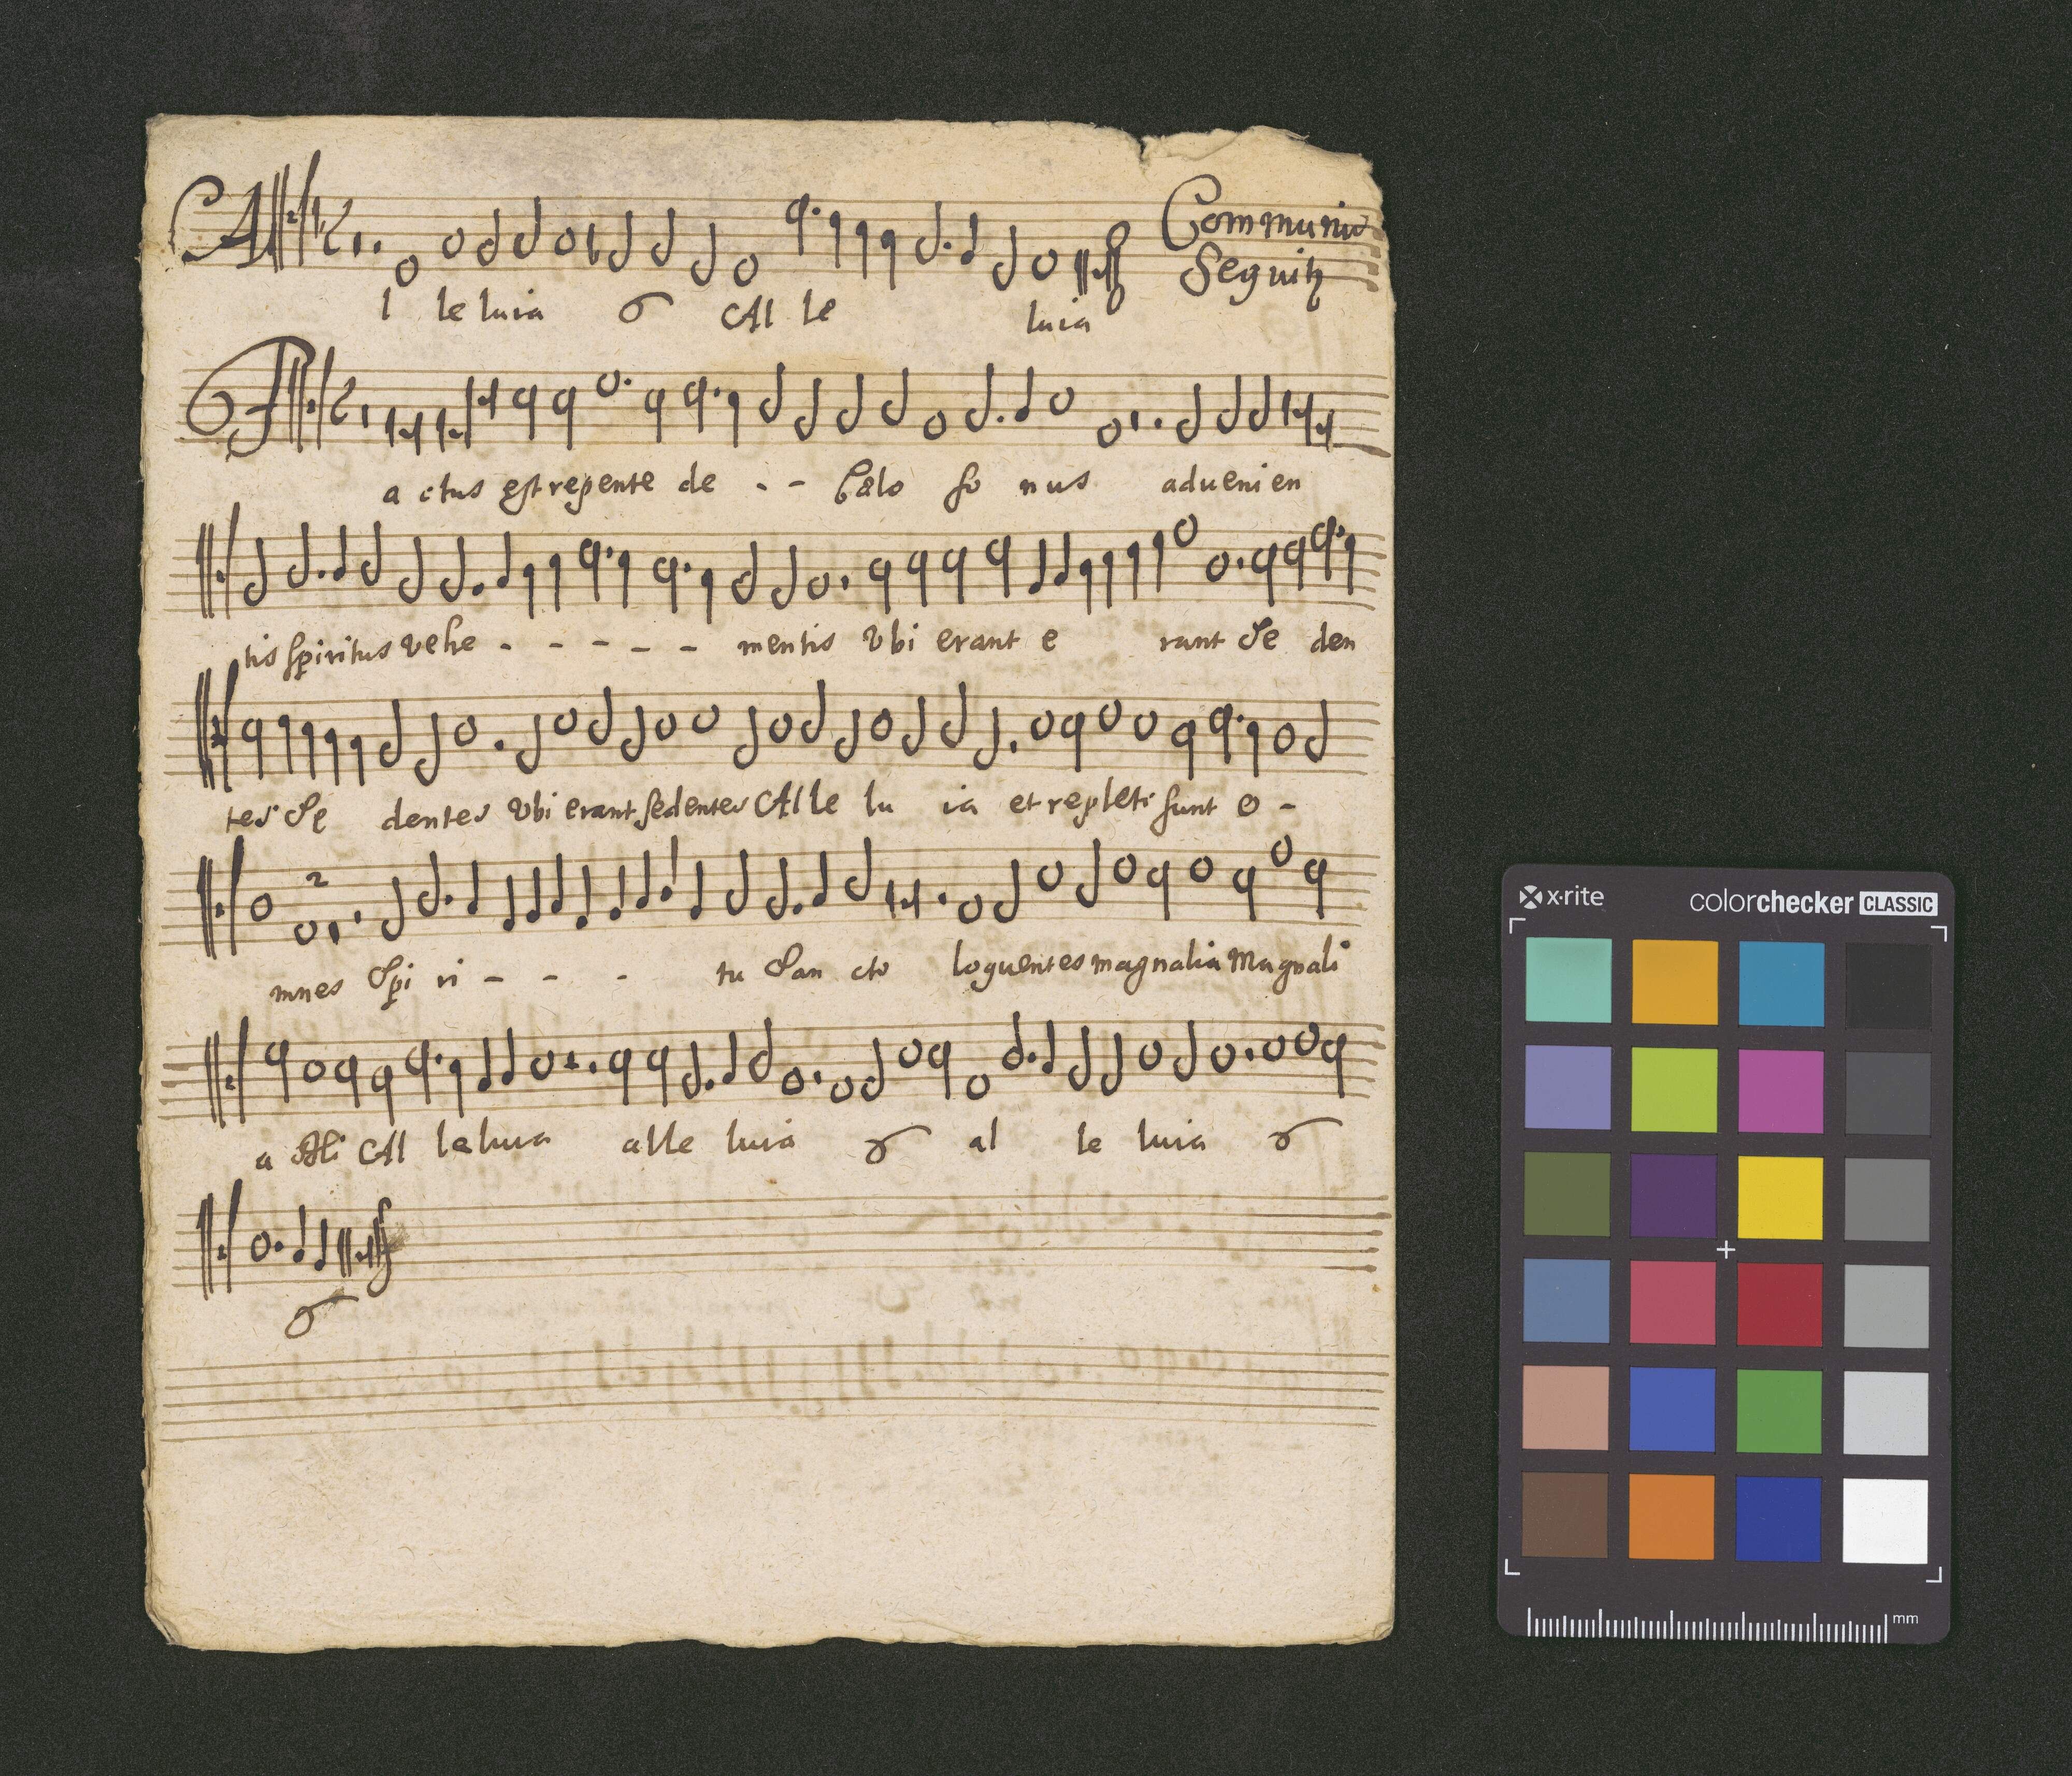 Communio
Al le luia Al le luia
Sequitr
Factus est repente de - - Cælo so nus aduenien
tis spiritus vehe - - - - - mentis Vbi erant e rant Se den
tes Se dentes Vbi erant sedentes Al le lu ia et repleti sunt o -
2
mnes Spi ri - - - tu San cto loquentes magnalia Magnali
a Al leluia alle luia al le luia
x·rite colorchecker CLASSIC
mm